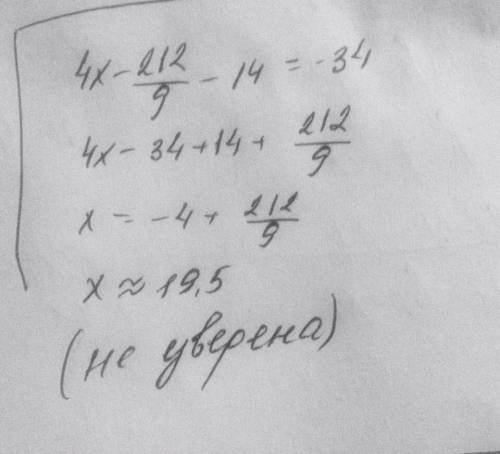 4x - 212/9 - 14 = -34
4x - 34 + 14 + 212/9
x = -4 + 212/9
x ≈ 19,5
(не уверена)